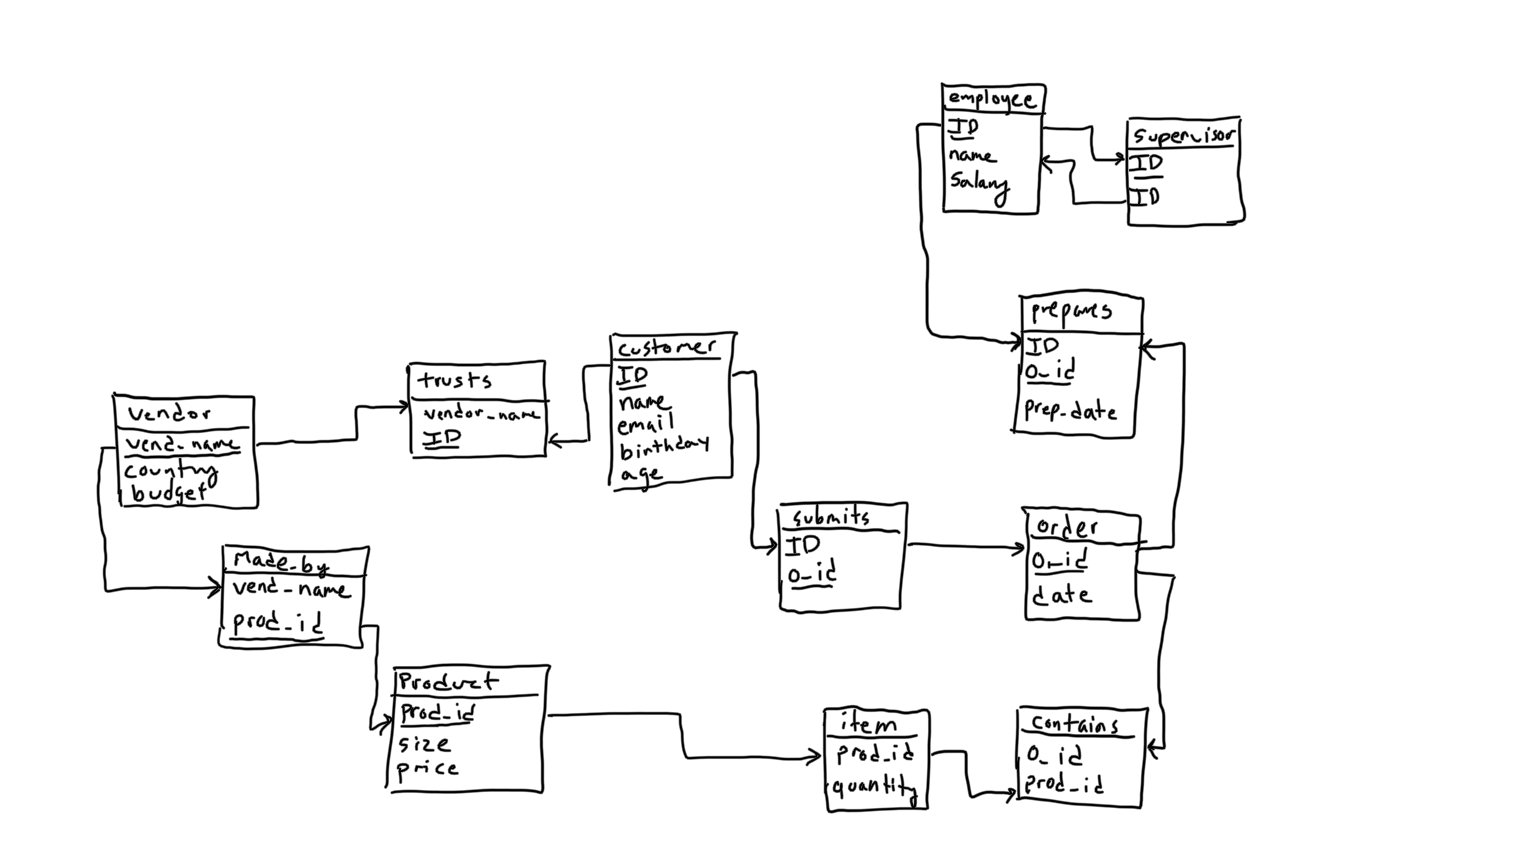 employee
ID
name
Salary
supervisor
ID
ID
prepares
ID
o_id
prep_date
customer
ID
name
email
birthday
age
trusts
vendor_name
ID
vendor
vend_name
country
budget
Made_by
vend_name
prod_id
submits
ID
o_id
order
o_id
date
Product
prod_id
size
price
item
prod_id
quantity
contains
o_id
prod_id